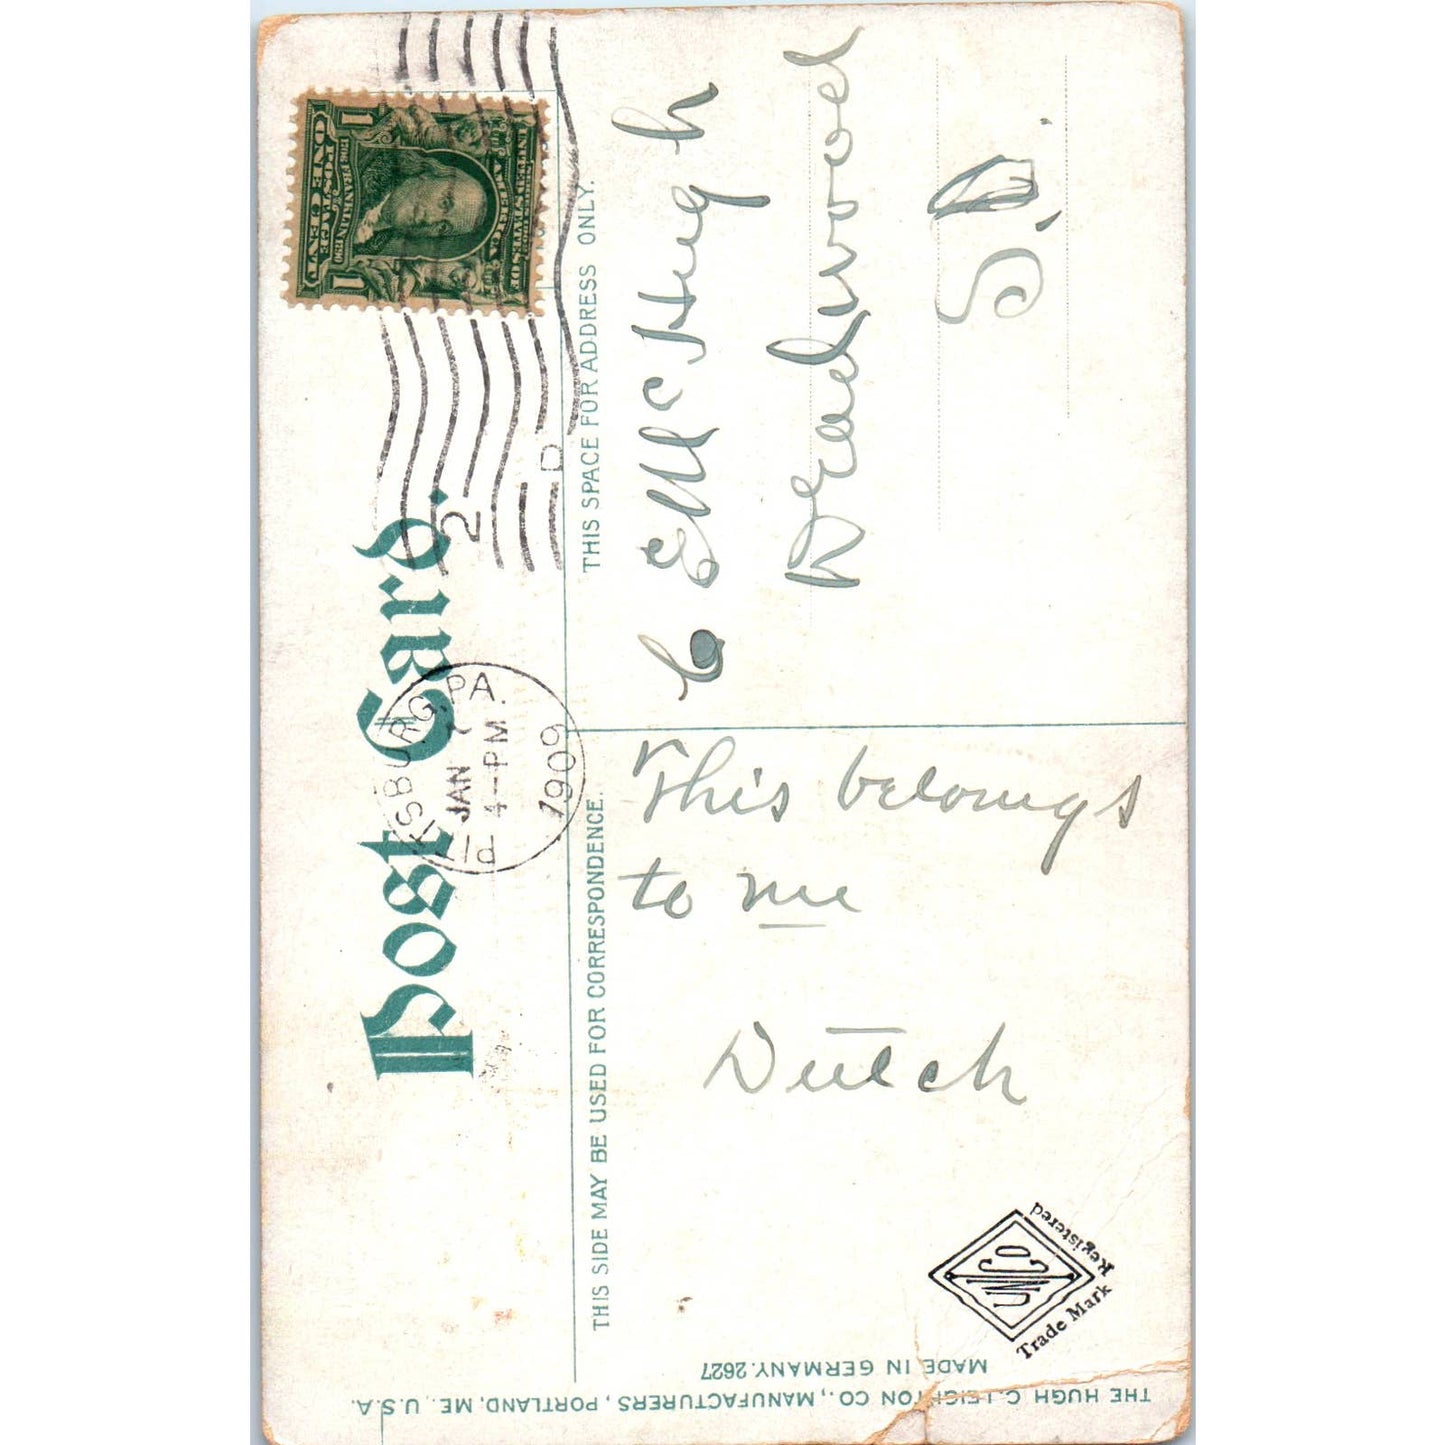 Post Card.
PITTSBURG, PA.
JAN 7
4-PM
1909
2
D
1 1
UNITED STATES OF AMERICA
POSTAGE
ONE CENT
THIS SIDE MAY BE USED FOR CORRESPONDENCE.
THIS SPACE FOR ADDRESS ONLY.
This belongs
to me
Dutch
C E McHugh
Deadwood
S.D.
THE HUGH C. LEIGHTON CO., MANUFACTURERS, PORTLAND, ME., U.S.A.
MADE IN GERMANY. 2627
Trade Mark
Registered